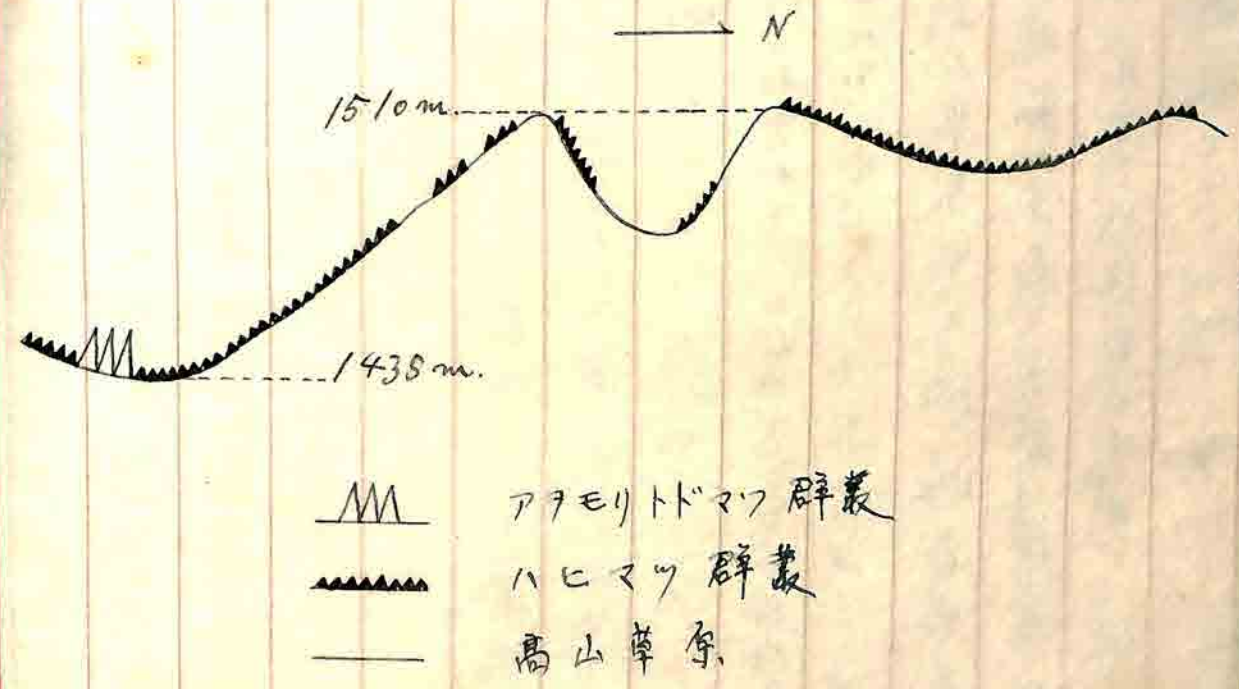 N
1510m.
1438m.
アヲモリトドマツ 群叢
ハヒマツ 群叢
高山草原